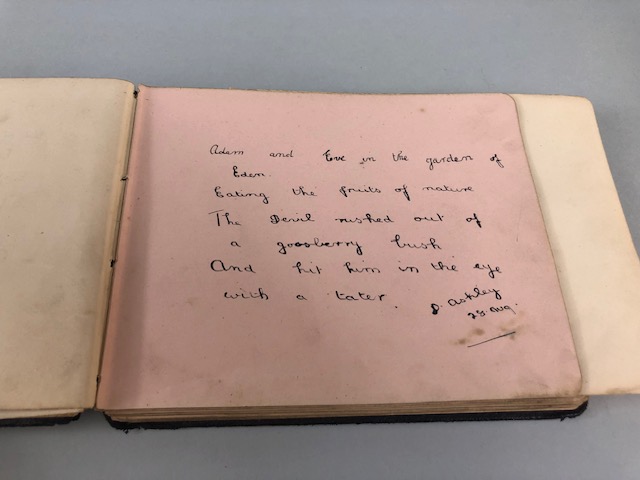 Adam and Eve in the garden of
Eden.
Eating the fruits of nature
The Devil rushed out of
a goosberry bush
And hit him in the eye
with a tater.
D. Ashley
23. Aug.